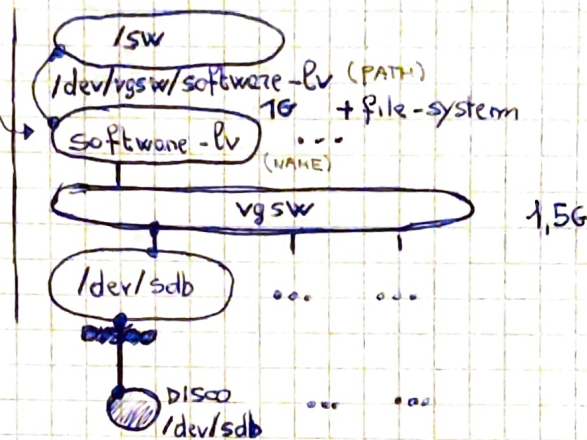 /sw
/dev/vgsw/software-lv (PATH)
1G + file-system
software-lv ...
(NAME)
vgsw 1,5G
/dev/sdb ... ...
DISCO
/dev/sdb ... ...